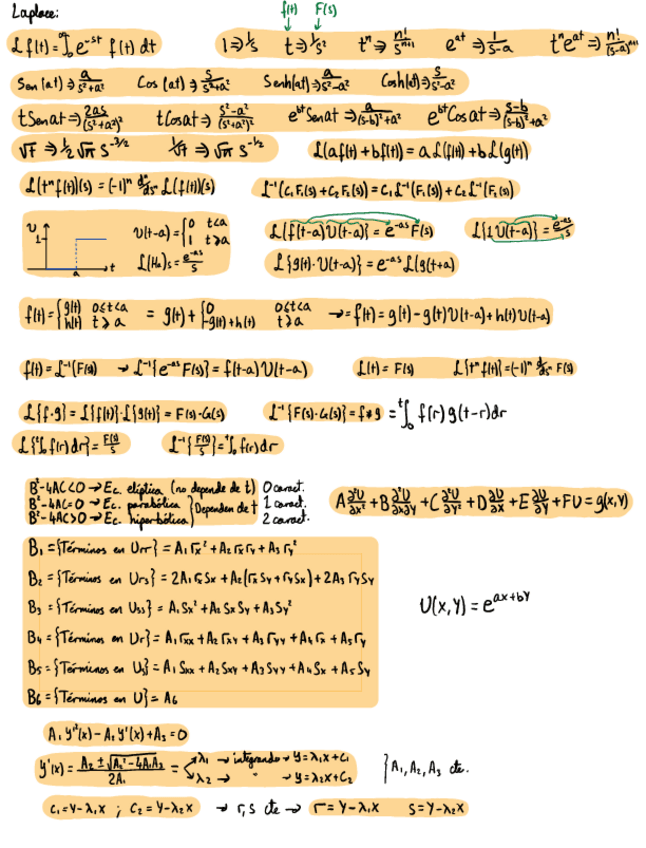 Laplace: f(t) F(s)
ℒ f(t) = ∫₀^∞ e^-st f(t) dt 1 ⇒ 1/s t ⇒ 1/s² tⁿ ⇒ n!/s^(n+1) e^at ⇒ 1/(s-a) tⁿe^at ⇒ n!/(s-a)^(n+1)
Sen(at) ⇒ a/(s²+a²) Cos(at) ⇒ s/(s²+a²) Senh(at) ⇒ a/(s²-a²) Cosh(at) ⇒ s/(s²-a²)
tSenat ⇒ 2as/(s²+a²)² tCosat ⇒ (s²-a²)/(s²+a²)² e^bt Senat ⇒ a/((s-b)²+a²) e^bt Cosat ⇒ (s-b)/((s-b)²+a²)
√t ⇒ 1/2 √π s^(-3/2) 1/√t ⇒ √π s^(-1/2) ℒ(af(t) + bf(t)) = aℒ(f(t)) + bℒ(g(t))
ℒ(tⁿf(t))(s) = (-1)ⁿ dⁿ/dsⁿ ℒ(f(t))(s) ℒ⁻¹(C₁F₁(s) + C₂F₂(s)) = C₁ℒ⁻¹(F₁(s)) + C₂ℒ⁻¹(F₂(s))
U 1 a t U(t-a) = {0 t<a
1 t≥a ℒ{f(t-a)U(t-a)} = e^-as F(s) ℒ{1 U(t-a)} = e^-as/s
ℒ(Ha)s = e^-as/s ℒ{g(t)·U(t-a)} = e^-as ℒ(g(t+a))
f(t) = {g(t) 0≤t<a
h(t) t≥a = g(t) + {0 0≤t<a
-g(t)+h(t) t≥a → f(t) = g(t) - g(t)U(t-a) + h(t)U(t-a)
f(t) = ℒ⁻¹(F(s)) → ℒ⁻¹{e^-as F(s)} = f(t-a)U(t-a) ℒ(t) = F(s) ℒ{tⁿ f(t)} = (-1)ⁿ dⁿ/dsⁿ F(s)
ℒ{f·g} = ℒ{f(t)}·ℒ{g(t)} = F(s)·G(s) ℒ⁻¹{F(s)·G(s)} = f*g = ᵗ∫₀ f(r)g(t-r)dr
ℒ{ᵗ∫₀ f(r)dr} = F(s)/s ℒ⁻¹{F(s)/s} = ᵗ∫₀ f(r)dr
B²-4AC<0 → Ec. elíptica (no depende de t) 0 caract.
B²-4AC=0 → Ec. parabólica } Dependen de t 1 caract.
B²-4AC>0 → Ec. hiperbólica 2 caract.
A ∂²U/∂x² + B ∂²U/∂x∂y + C ∂²U/∂y² + D ∂U/∂x + E ∂U/∂y + FU = g(x,y)
B₁ = {Términos en Urr} = A₁rx² + A₂rxry + A₃ry²
B₂ = {Términos en Urs} = 2A₁rxSx + A₂(rxSy + rySx) + 2A₃rySy
B₃ = {Términos en Uss} = A₁Sx² + A₂SxSy + A₃Sy²
U(x,y) = e^(ax+by)
B₄ = {Términos en Ur} = A₁rxx + A₂rxy + A₃ryy + A₄rx + A₅ry
B₅ = {Términos en Us} = A₁Sxx + A₂Sxy + A₃Syy + A₄Sx + A₅Sy
B₆ = {Términos en U} = A₆
A₁y'²(x) - A₂y'(x) + A₃ = 0
y'(x) = (A₂ ± √(A₂² - 4A₁A₃))/2A₁ = λ₁ → integrando → y = λ₁x + C₁
λ₂ → " → y = λ₂x + C₂ } A₁, A₂, A₃ cte.
C₁ = y - λ₁x ; C₂ = y - λ₂x → r,s cte → r = y - λ₁x s = y - λ₂x